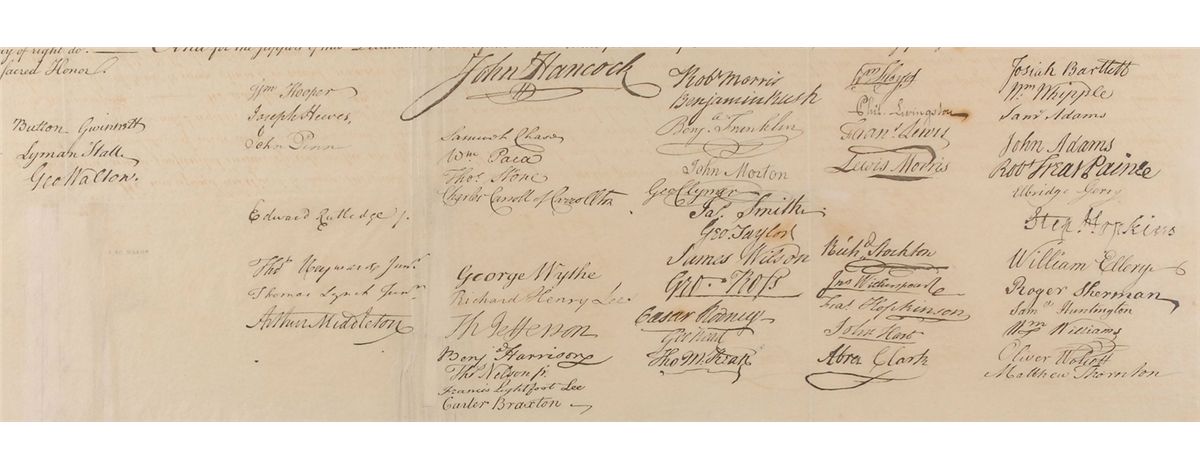 of right do.
sacred Honor.
Button Gwinnett
Lyman Hall
Geo Walton.
Wm Hooper
Joseph Hewes,
John Penn
Edward Rutledge /.
Thos Heyward Junr.
Thomas Lynch Junr.
Arthur Middleton
John Hancock
Samuel Chase
Wm Paca
Thos Stone
Charles Carroll of Carrollton
George Wythe
Richard Henry Lee
Th Jefferson
Benj Harrison
Thos Nelson jr
Francis Lightfoot Lee
Carter Braxton
Robt Morris
Benjamin Rush
Benja Franklin
John Morton
Geo Clymer
Jas. Smith
Geo. Taylor
James Wilson
Geo. Ross
Caesar Rodney
Geo Read
Tho M:Kean
Wm Floyd
Phil. Livingston
Frans. Lewis
Lewis Morris
Richd. Stockton
Jno Witherspoon
Fras. Hopkinson
John Hart
Abra Clark
Josiah Bartlett
Wm Whipple
Saml Adams
John Adams
Robt Treat Paine
Elbridge Gerry
Step. Hopkins
William Ellery
Roger Sherman
Saml Huntington
Wm Williams
Oliver Wolcott
Matthew Thornton